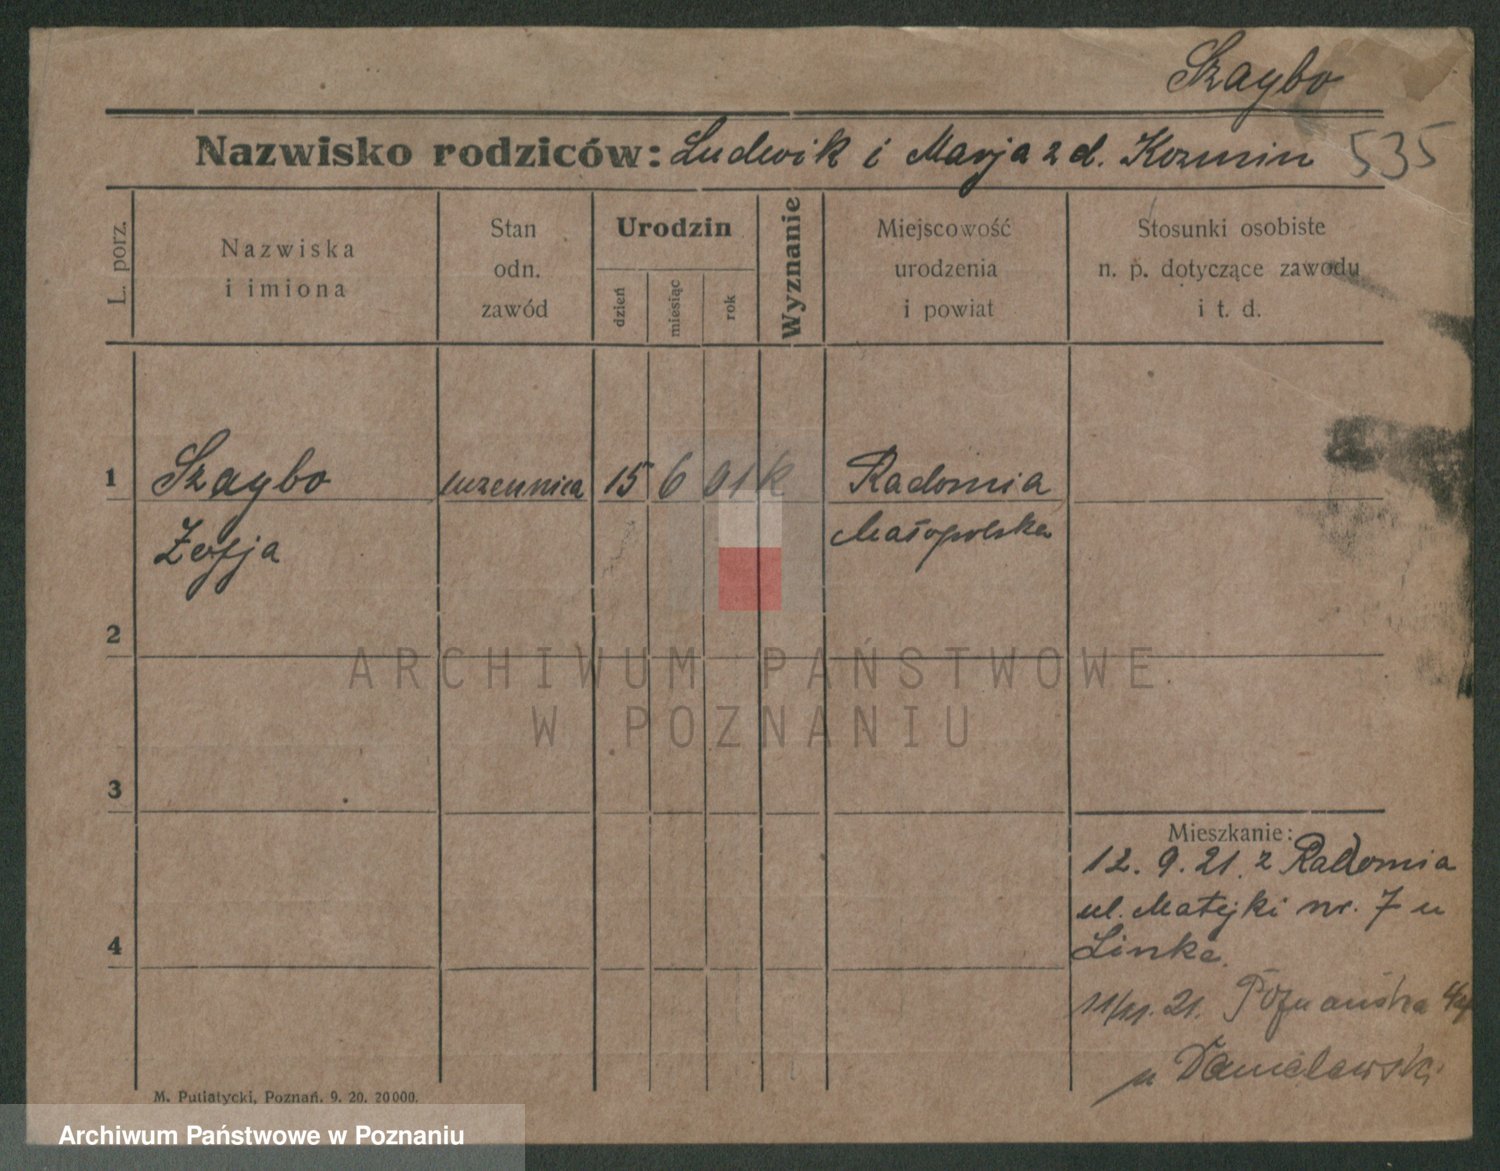 Szaybo
Nazwisko rodziców: Ludwik i Marja z d. Kozmin 535
L. porz.
Nazwiska
i imiona
Stan
odn.
zawód
Urodzin
dzień
miesiąc
rok
Wyznanie
Miejscowość
urodzenia
i powiat
Stosunki osobiste
n. p. dotyczące zawodu
i t. d.
1 Szaybo uczennica 15 6 01 k Radomia
Zofja Małopolska
2
3
4
Mieszkanie:
12. 9. 21. z Radomia
ul. Matejki nr. 7 u
Linke.
21. Poznańska
u Danielewski
M. Putiatycki, Poznań. 9. 20. 20000.
ARCHIWUM PAŃSTWOWE
W POZNANIU
Archiwum Państwowe w Poznaniu